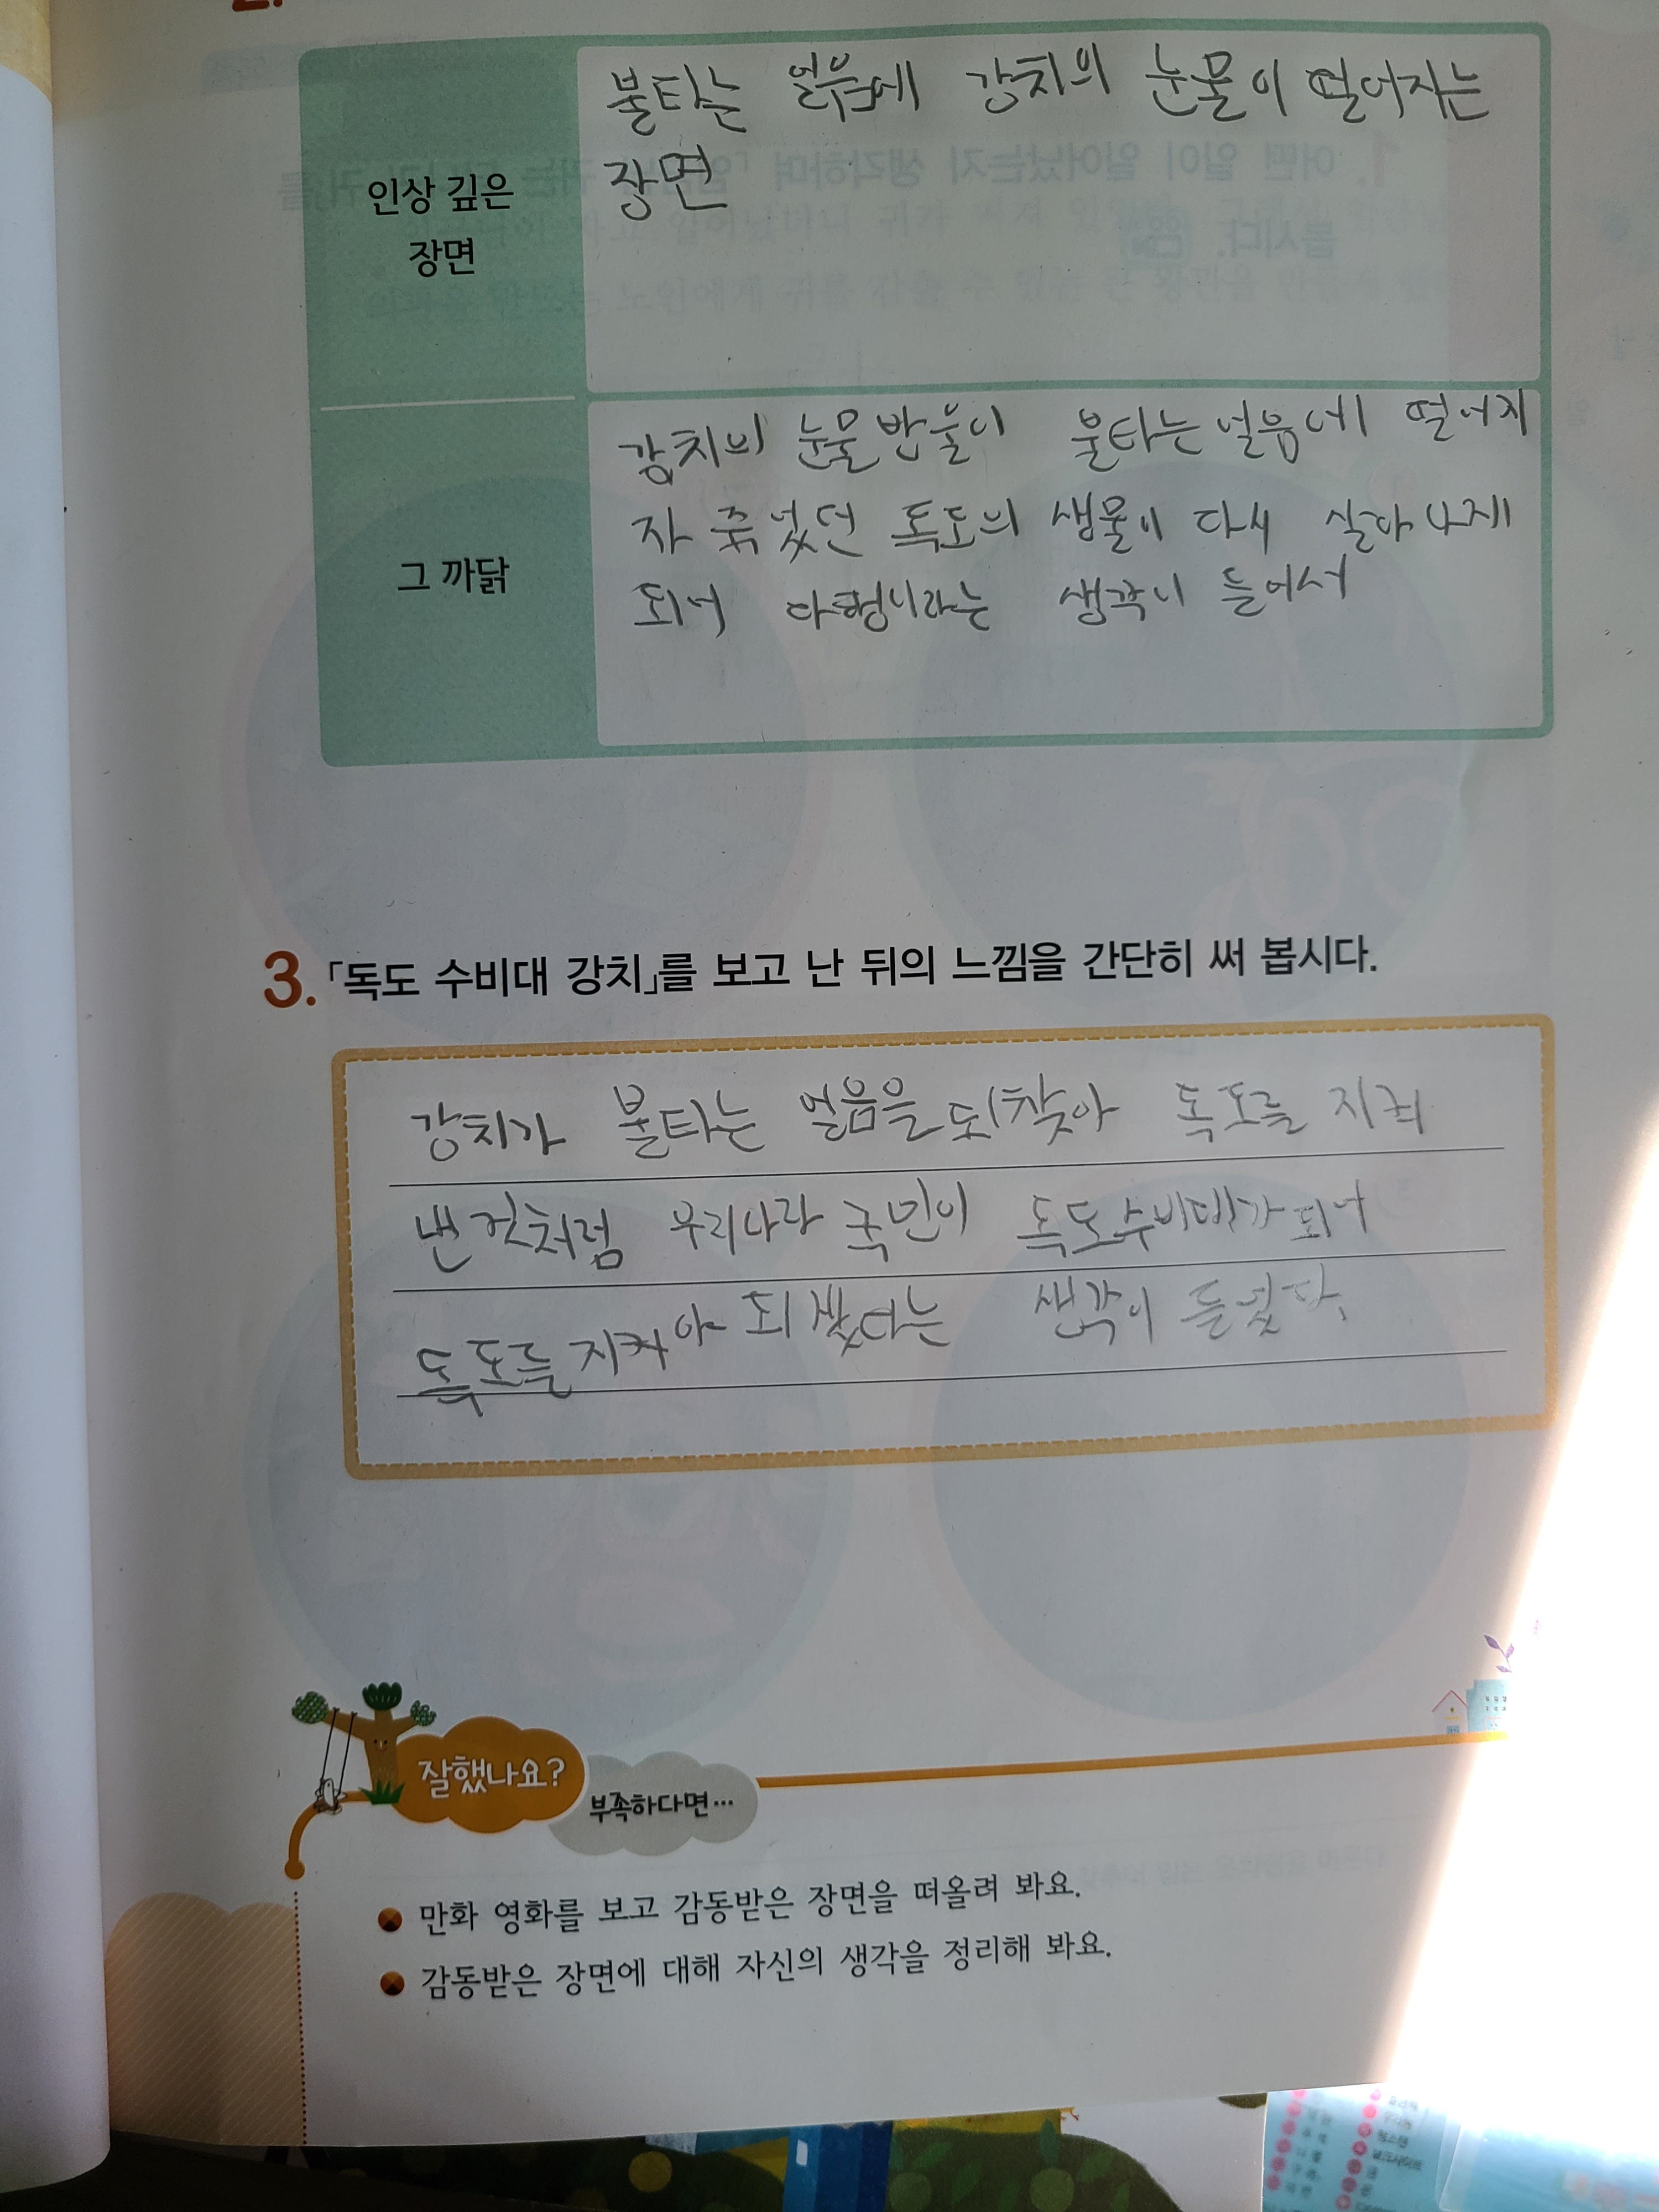 2.
인상 깊은
장면
불타는 얼음에 강치의 눈물이 떨어지는
장면
그 까닭
강치의 눈물 반울이 불타는 얼음에 떨어지
자 죽었던 독도의 생물이 다시 살아나게
되어 다행이라는 생각이 들어서
3. 「독도 수비대 강치」를 보고 난 뒤의 느낌을 간단히 써 봅시다.
강치가 불타는 얼음을 되찾아 독도를 지켜
낸 것처럼 우리나라 국민이 독도수비대가 되어
독도를 지켜야 되겠다는 생각이 들었다.
잘했나요?
부족하다면…
만화 영화를 보고 감동받은 장면을 떠올려 봐요.
감동받은 장면에 대해 자신의 생각을 정리해 봐요.